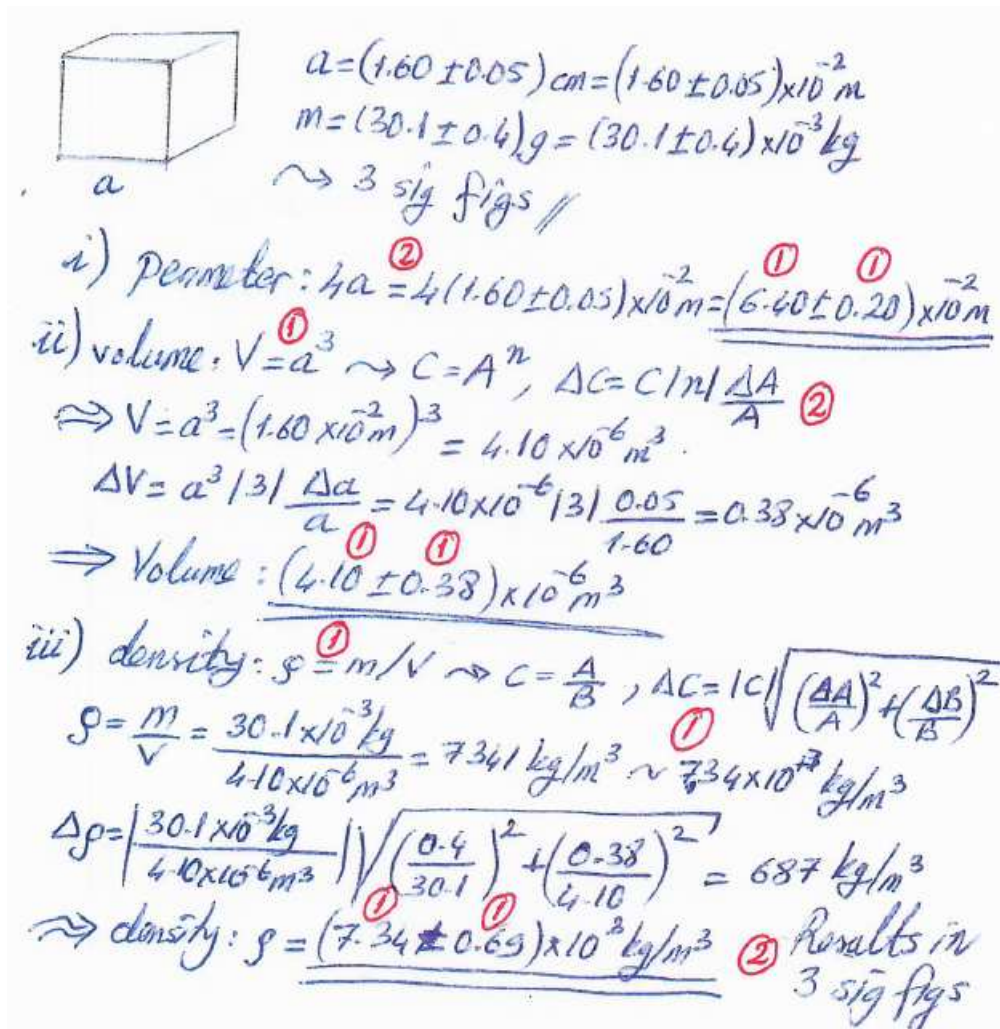 a=(1.60 ±0.05) cm = (1.60 ±0.05)×10⁻² m
m=(30.1±0.4) g = (30.1±0.4)×10⁻³ kg
a
⇝ 3 sig figs //
i) perimeter: 4a ② = 4(1.60±0.05)×10⁻² m = (6.40 ① ± 0.20 ①)×10⁻² m
ii) volume: V ① = a³ ⇝ C = Aⁿ, ΔC = C|n| ΔA/A ②
⇒ V = a³ = (1.60 ×10⁻² m)³ = 4.10 ×10⁻⁶ m³.
ΔV = a³ |3| Δa/a = 4.10×10⁻⁶ |3| 0.05/1.60 = 0.38×10⁻⁶ m³
⇒ Volume: (4.10 ① ± 0.38 ①)×10⁻⁶ m³
iii) density: ρ ① = m/V ⇝ C = A/B, ΔC = |C| √((ΔA/A)² + (ΔB/B)²) ①
ρ = m/V = 30.1×10⁻³ kg / 4.10×10⁻⁶ m³ = 7341 kg/m³ ~ 7.34×10³ kg/m³
Δρ = |30.1×10⁻³ kg / 4.10×10⁻⁶ m³| √((0.4/30.1)² + (0.38/4.10)²) = 687 kg/m³
⇝ density: ρ = (7.34 ① ± 0.69 ①)×10³ kg/m³ ② Results in
3 sig figs